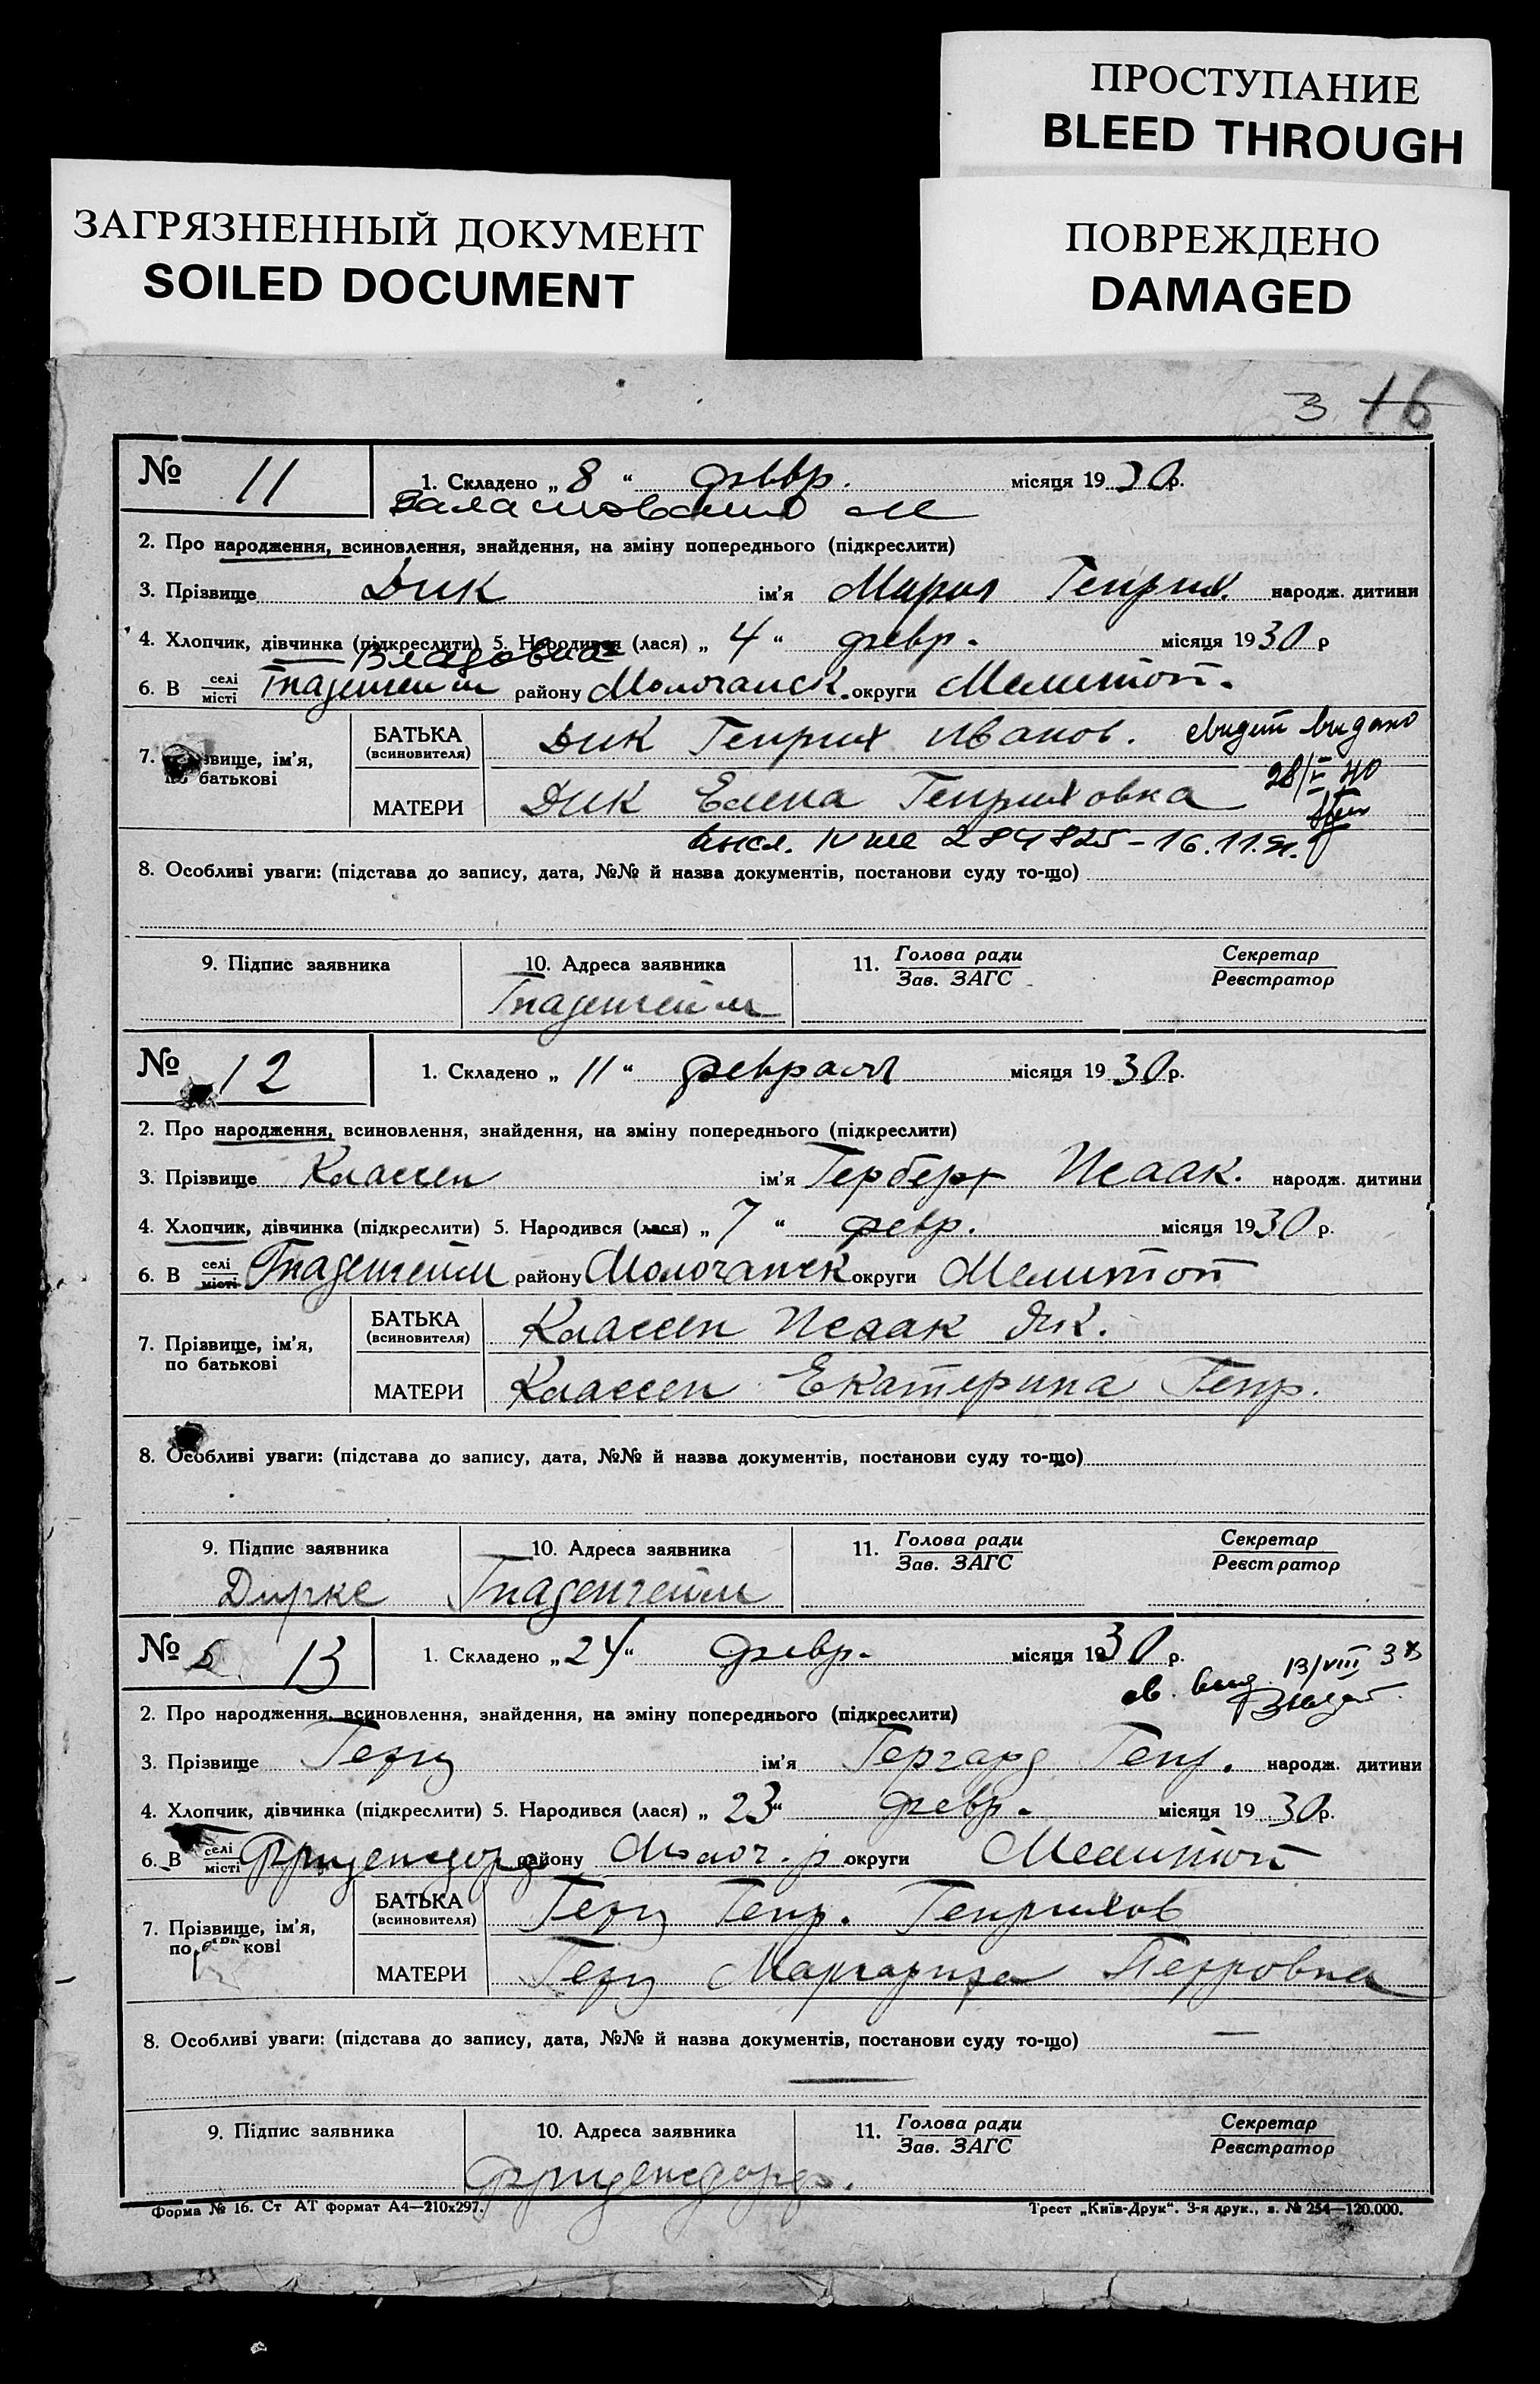 ПРОСТУПАНИЕ
BLEED THROUGH
ЗАГРЯЗНЕННЫЙ ДОКУМЕНТ
SOILED DOCUMENT
ПОВРЕЖДЕНО
DAMAGED
3 16
№ 11
1. Складено „ 8 “ февр. місяця 1930р.
2. Про народження, всиновлення, знайдення, на зміну попереднього (підкреслити)
3. Прізвище Дик ім'я Мария Генрих. народж. дитини
4. Хлопчик, дівчинка (підкреслити) 5. Народився (лася) „ 4 “ февр. місяця 1930 р
6. В селі/місті Гнаденгейм району Молочанск. округи Мелитоп.
7. звище, ім'я, по батькові
БАТЬКА (всиновителя) Дик Генрих Иванов. свидет видано
МАТЕРИ Дик Елена Генриховка 28/ 40
284825 – 16.11.
8. Особливі уваги: (підстава до запису, дата, №№ й назва документів, постанови суду то-що)
9. Підпис заявника
10. Адреса заявника
11. Голова ради / Зав. ЗАГС
Секретар / Реєстратор
Гнаденгейм
№ 12
1. Складено „ 11 “ февраля місяця 1930р.
2. Про народження, всиновлення, знайдення, на зміну попереднього (підкреслити)
3. Прізвище Классен ім'я Герберт Исаак. народж. дитини
4. Хлопчик, дівчинка (підкреслити) 5. Народився (лася) „ 7 “ февр. місяця 1930 р.
6. В селі/місті Гнаденгейм району Молочанск округи Мелитоп
7. Прізвище, ім'я, по батькові
БАТЬКА (всиновителя) Классен Исаак Як.
МАТЕРИ Классен Екатерина Генр.
8. Особливі уваги: (підстава до запису, дата, №№ й назва документів, постанови суду то-що)
9. Підпис заявника
10. Адреса заявника
11. Голова ради / Зав. ЗАГС
Секретар / Реєстратор
Дирке Гнаденгейм
№ 13
1. Складено „ 24 “ февр. місяця 1930 р.
св. выд. 13/VIII
2. Про народження, всиновлення, знайдення, на зміну попереднього (підкреслити)
3. Прізвище Герц ім'я Гергард Генр. народж. дитини
4. Хлопчик, дівчинка (підкреслити) 5. Народився (лася) „ 23 “ февр. місяця 1930р.
6. В селі/місті Фриденсдорф району Молоч. р округи Мелитоп
7. Прізвище, ім'я, по кові
БАТЬКА (всиновителя) Герц Генр. Генрихов
МАТЕРИ Герц Маргарита Петровна
8. Особливі уваги: (підстава до запису, дата, №№ й назва документів, постанови суду то-що)
9. Підпис заявника
10. Адреса заявника
11. Голова ради / Зав. ЗАГС
Секретар / Реєстратор
Фриденсдорф.
Форма № 16. Ст АТ формат А4—210х297.
Трест „Київ-Друк“. 3-я друк., з. № 254—120.000.